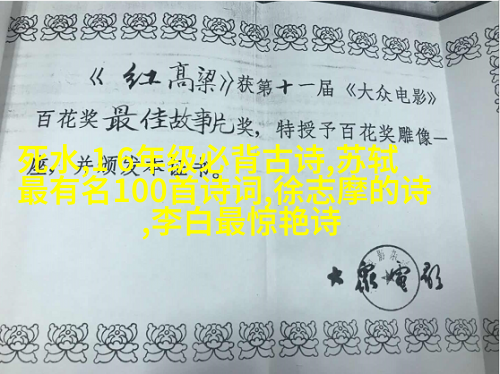 《红高梁》获第十一届《大众电影》
百花奖最佳故事片奖，特授予百花奖雕像一
座，并颁发本证书。
死水,1-6年级必背古诗,苏轼
最有名100首诗词,徐志摩的诗
,李白最惊艳诗
大众电影